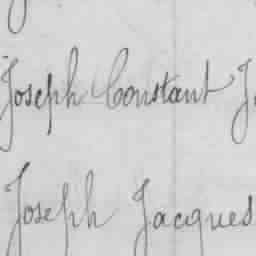 Joseph Constant
Joseph Jacques